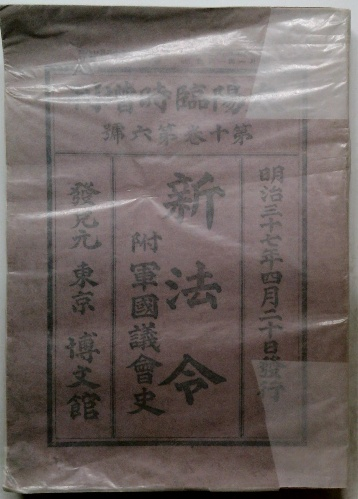 陽臨時増刊
第十巻第六號
明治三十七年四月二十日發行
新法令
附 軍國議會史
發兌元 東京 博文館